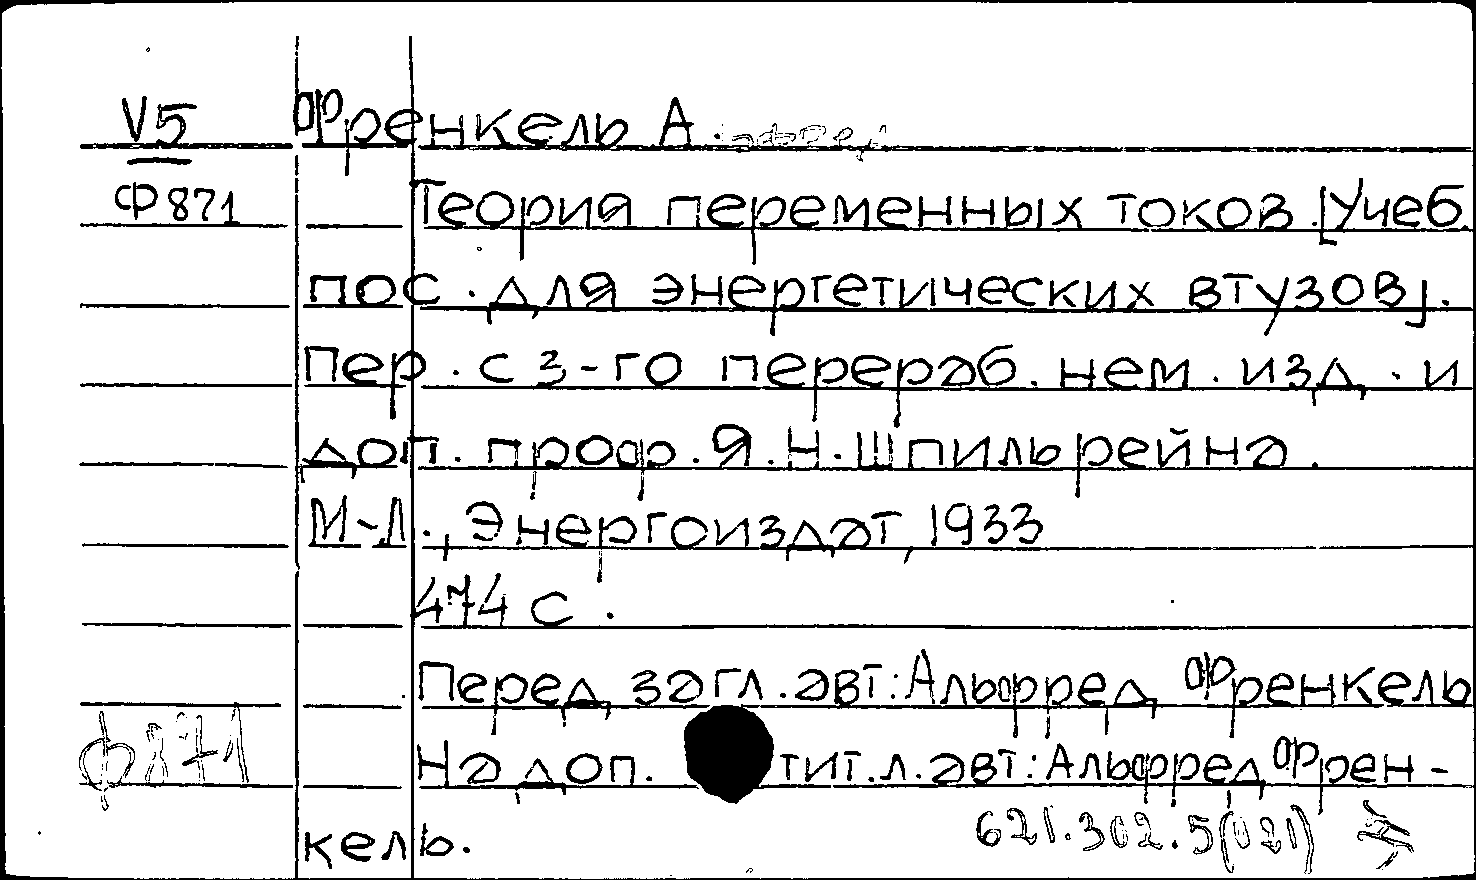 V5 Френкель А.
Ф871 Теория переменных токов. [Учеб.
пос. для энергетических втузов].
Пер. с 3-го перераб. нем. изд. и
доп. проф. Я.Н. Шпильрейна.
М-Л., Энергоиздат, 1933
474 с.
Перед загл. авт: Альфред Френкель
Ф871 На доп. тит. л. авт: Альфред Френ-
кель.
621.302.5(021)